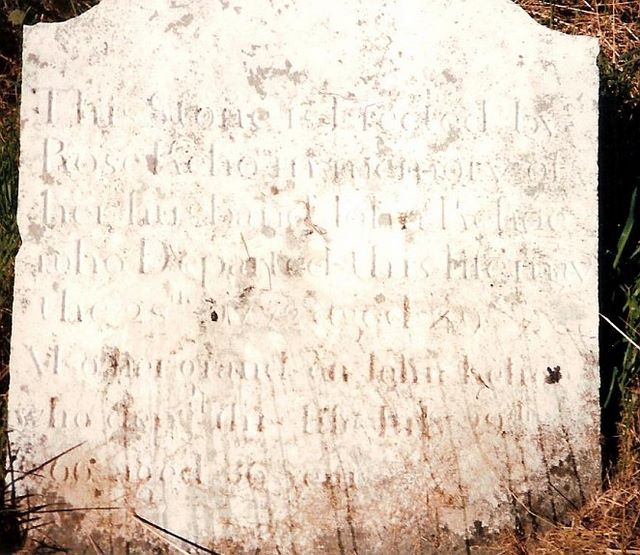 This Stone is Erected by
Rose Keho in memory of
her husband John Kehoe
who Departed this life may
the 28th aged
Also her grand son John Keho
who depd this life July 29th
66 aged 36 years